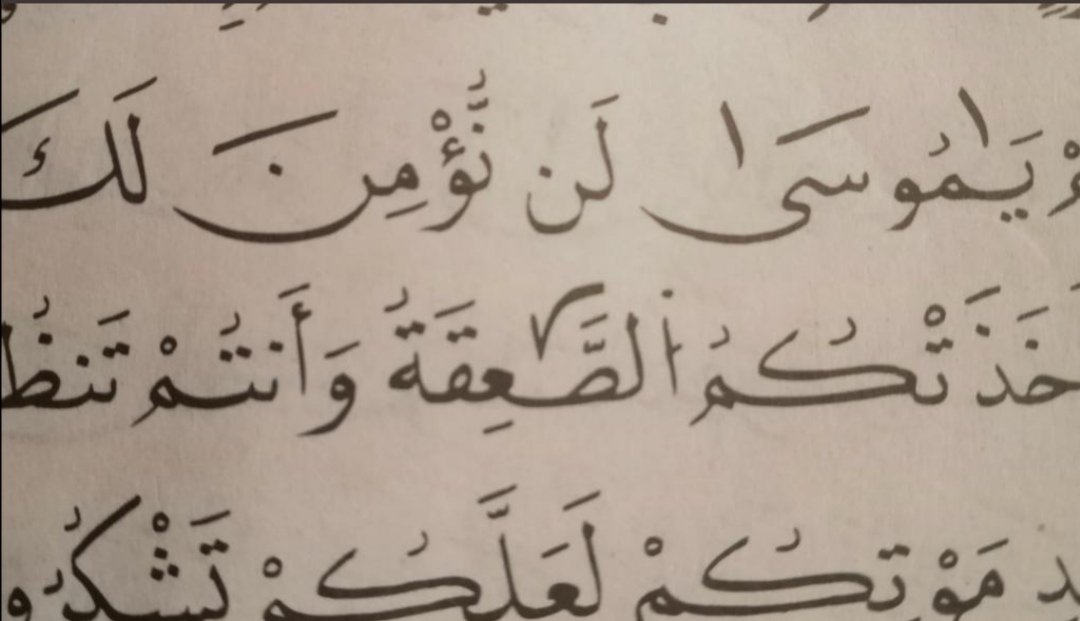 يَـٰمُوسَىٰ لَن نُّؤْمِنَ لَكَ
خَذَتْكُمُ ٱلصَّـٰعِقَةُ وَأَنتُمْ تَنظُ
مَوْتِكُمْ لَعَلَّكُمْ تَشْكُرُو